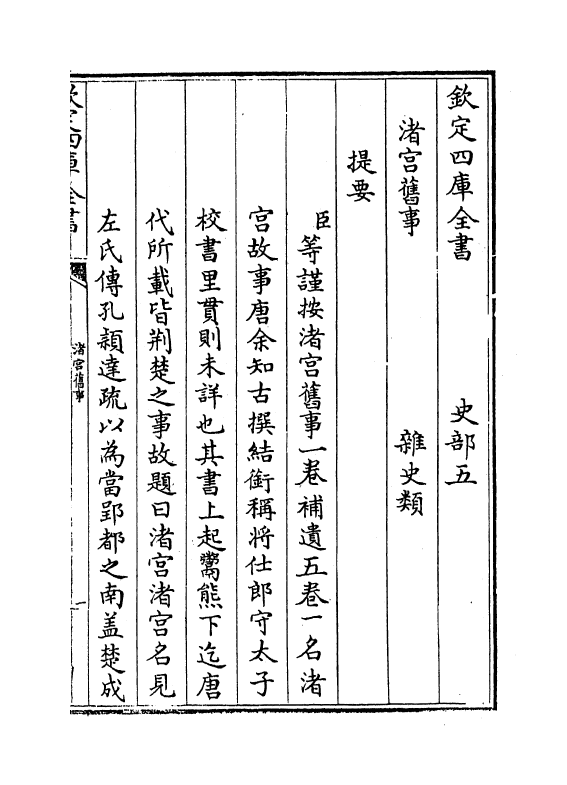 欽定四庫全書　史部五
渚宫舊事　雜史類
提要
臣等謹按渚宫舊事一巻補遺五巻一名渚
宫故事唐余知古撰結銜稱将仕郎守太子
校書里貫則未詳也其書上起鬻熊下迄唐
代所載皆荆楚之事故題曰渚宫渚宫名見
左氏傳孔頴達疏以為當郢都之南盖楚成
欽定四庫全書
渚宫舊事
一